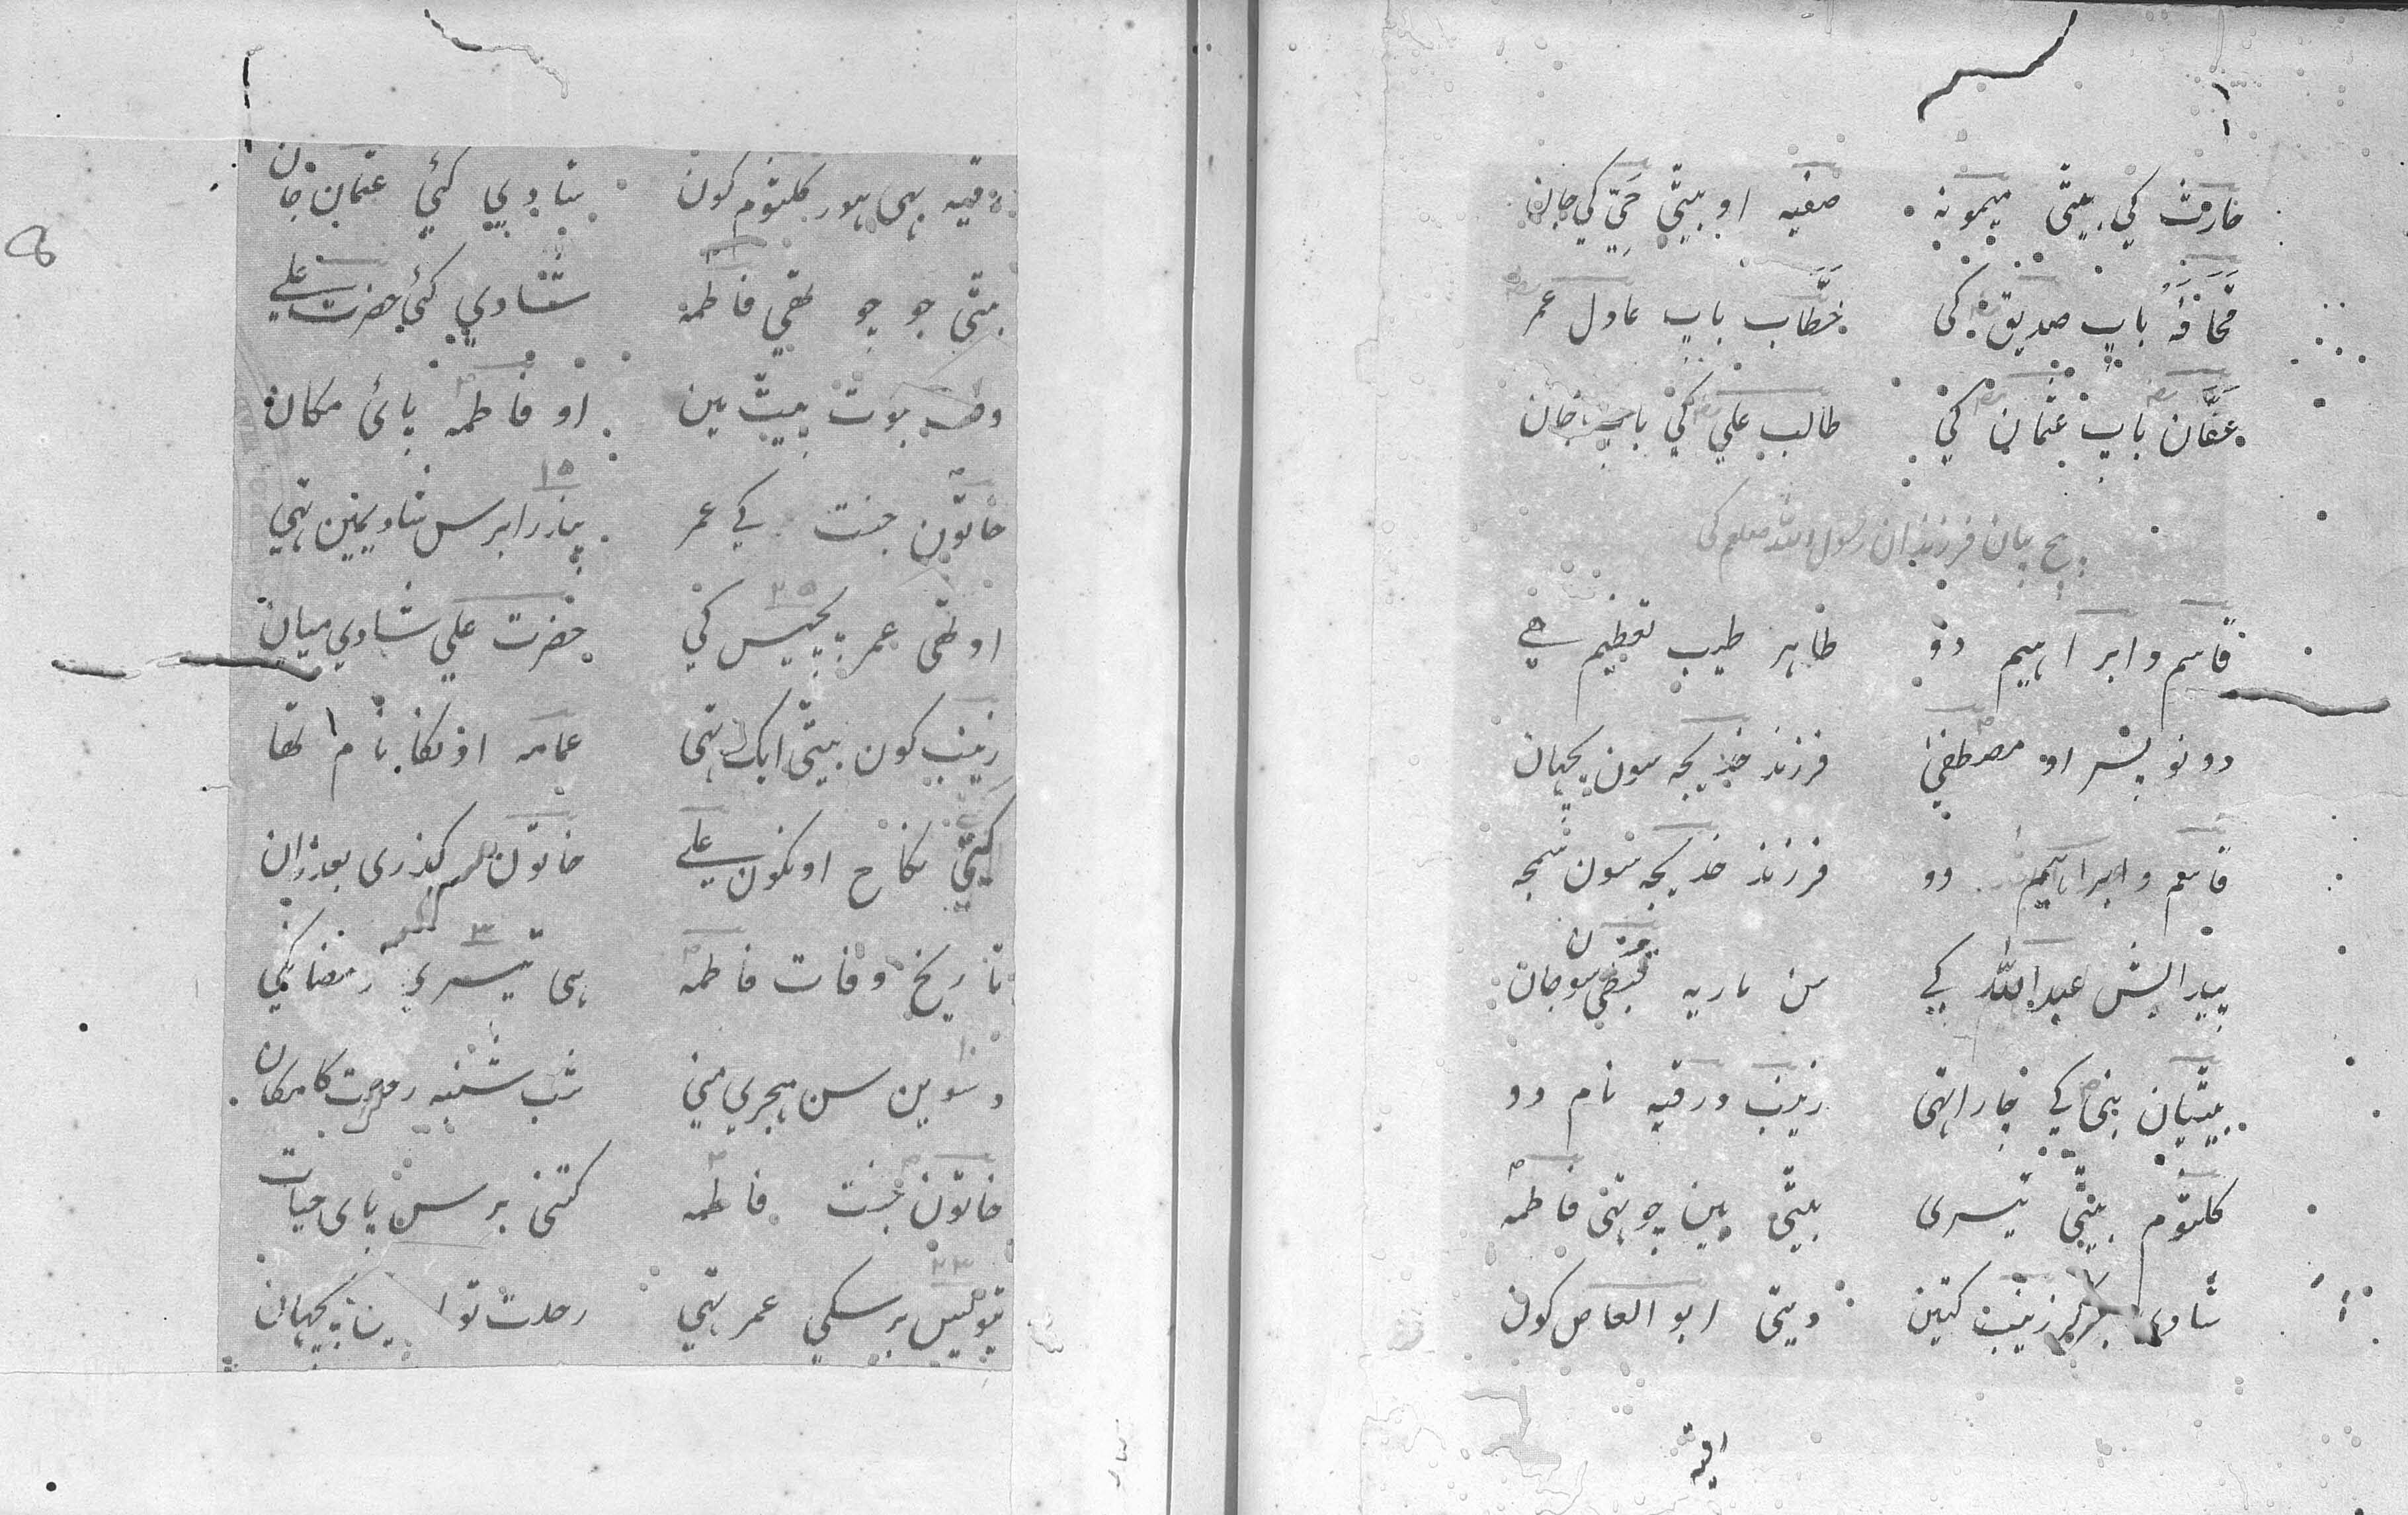 حارث کی بیٹی میمونہ صفیہ او بیٹی حَیّ کی جان
قُحَافَہ باپ صدیق کی خطّاب باپ عادل عمر
عفّان باپ عثمان کی طالب علی کی باپ جان
بیان فرزندان رسول اللہ صلعم کی
قاسم و ابراہیم دو طاہر طیب تعظیم ہے
دونو پسر او مصطفیٰ فرزند خدیجہ سون پچھان
قاسم و ابراہیم دو فرزند خدیجہ سون سمجہ
پیدایش عبد اللہ کے من ماریہ قبطی سو جان
بیٹیان نبی کے چار اتہی زینب و رقیہ نام دو
کلثوم بیٹی تیسری بیٹی ہین چوتہی فاطمہ
شادی زینب کتین دیتی ابو العاص کون
رقیہ بہی ہور کلثوم کون شادی کئی عثمان جان
بیٹی جو چوتھی فاطمہ شادی کئی حضرت علی
بیت مین او فاطمہ پائی مکان
خاتون جنت کے عمر پندرا برس شادیمین تہی
او تھی عمر پچیس کی حضرت علی شادی میان
زینب کون بیٹی ایک تہی عمامہ اونکا نام تھا
کیتی نکاح اونکون علی خاتون گذری بعدزان
تاریخ وفات فاطمہ ہی تیسری رمضانکی
دسوین سن ہجری منی شب شنبہ رحلت کا مکان
خاتون جنت فاطمہ کتنی برس پای حیات
برسکی عمر تہی رحلت پچھان